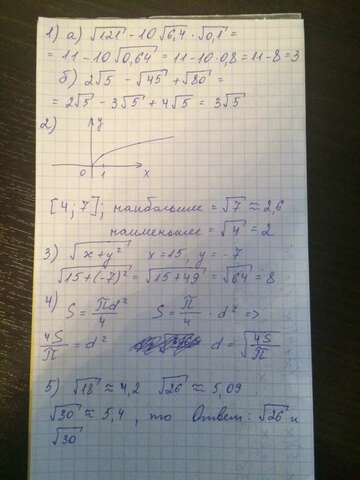 1) а) √121 - 10√6,4 · √0,1 =
= 11 - 10√0,64 = 11 - 10·0,8 = 11 - 8 = 3
б) 2√5 - √45 + √80 =
= 2√5 - 3√5 + 4√5 = 3√5
2)
y
0 1 x
[4; 7]; наибольшее = √7 ≈ 2,6
наименьшее = √4 = 2
3) √x+y² x = 15, y = -7
√15+(-7)² = √15+49 = √64 = 8
4) S = Πd²/4 S = Π/4 · d² =>
4S/Π = d² d = √4S/Π
5) √18 ≈ 4,2 √26 ≈ 5,09
√30 ≈ 5,4, то Ответ: √26 и
√30